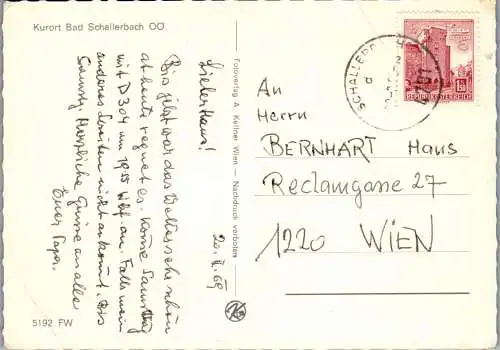 Kurort Bad Schallerbach OÖ.
20. II. 69
Lieber Hans!
Bis jetzt war das Wetter sehr schön
ab heute regnet es. Komme Samstag
mit D 304 um 19⁵⁵ Wbf. an. Falls mein
anderes Schreiben nicht ankommt. Bis
Samstag Herzliche Grüsse an alle
Euer Papa.
5192 FW
Fotoverlag A. Kellner Wien — Nachdruck verboten
SCHALLERB
4701
1.50
REPUBLIK ÖSTERREICH
An
Herrn
BERNHART Hans
Reclamgasse 27
1220 WIEN